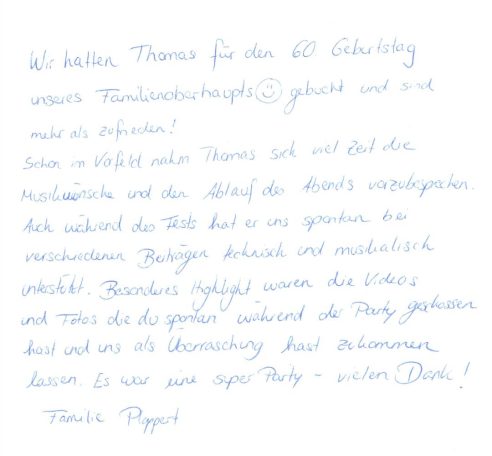 Wir hatten Thomas für den 60. Geburtstag
unseres Familienoberhaupts ☺ gebucht und sind
mehr als zufrieden!
Schon im Vorfeld nahm Thomas sich viel Zeit die
Musikwünsche und den Ablauf des Abends vorzubesprechen.
Auch während des Fests hat er uns spontan bei
verschiedenen Beiträgen technisch und musikalisch
unterstützt. Besonderes Highlight waren die Videos
und Fotos die du spontan während der Party geschossen
hast und uns als Überraschung hast zukommen
lassen. Es war eine super Party – vielen Dank!
Familie Plappert